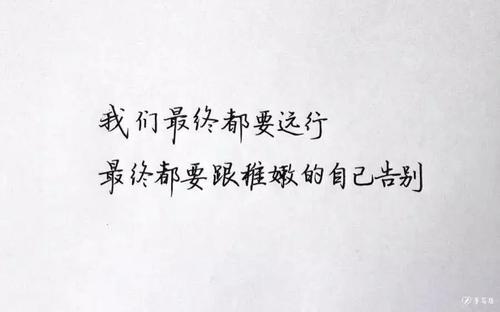 我们最终都要远行
最终都要跟稚嫩的自己告别